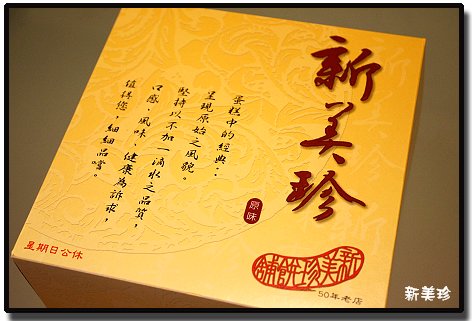 新美珍
蛋糕中的經典：
呈現原始之風貌。
堅持以不加一滴水之品質，
口感、風味、健康為訴求，
值得您，細細品嚐。
原味
新美珍餅舖
50年老店
星期日公休
新美珍